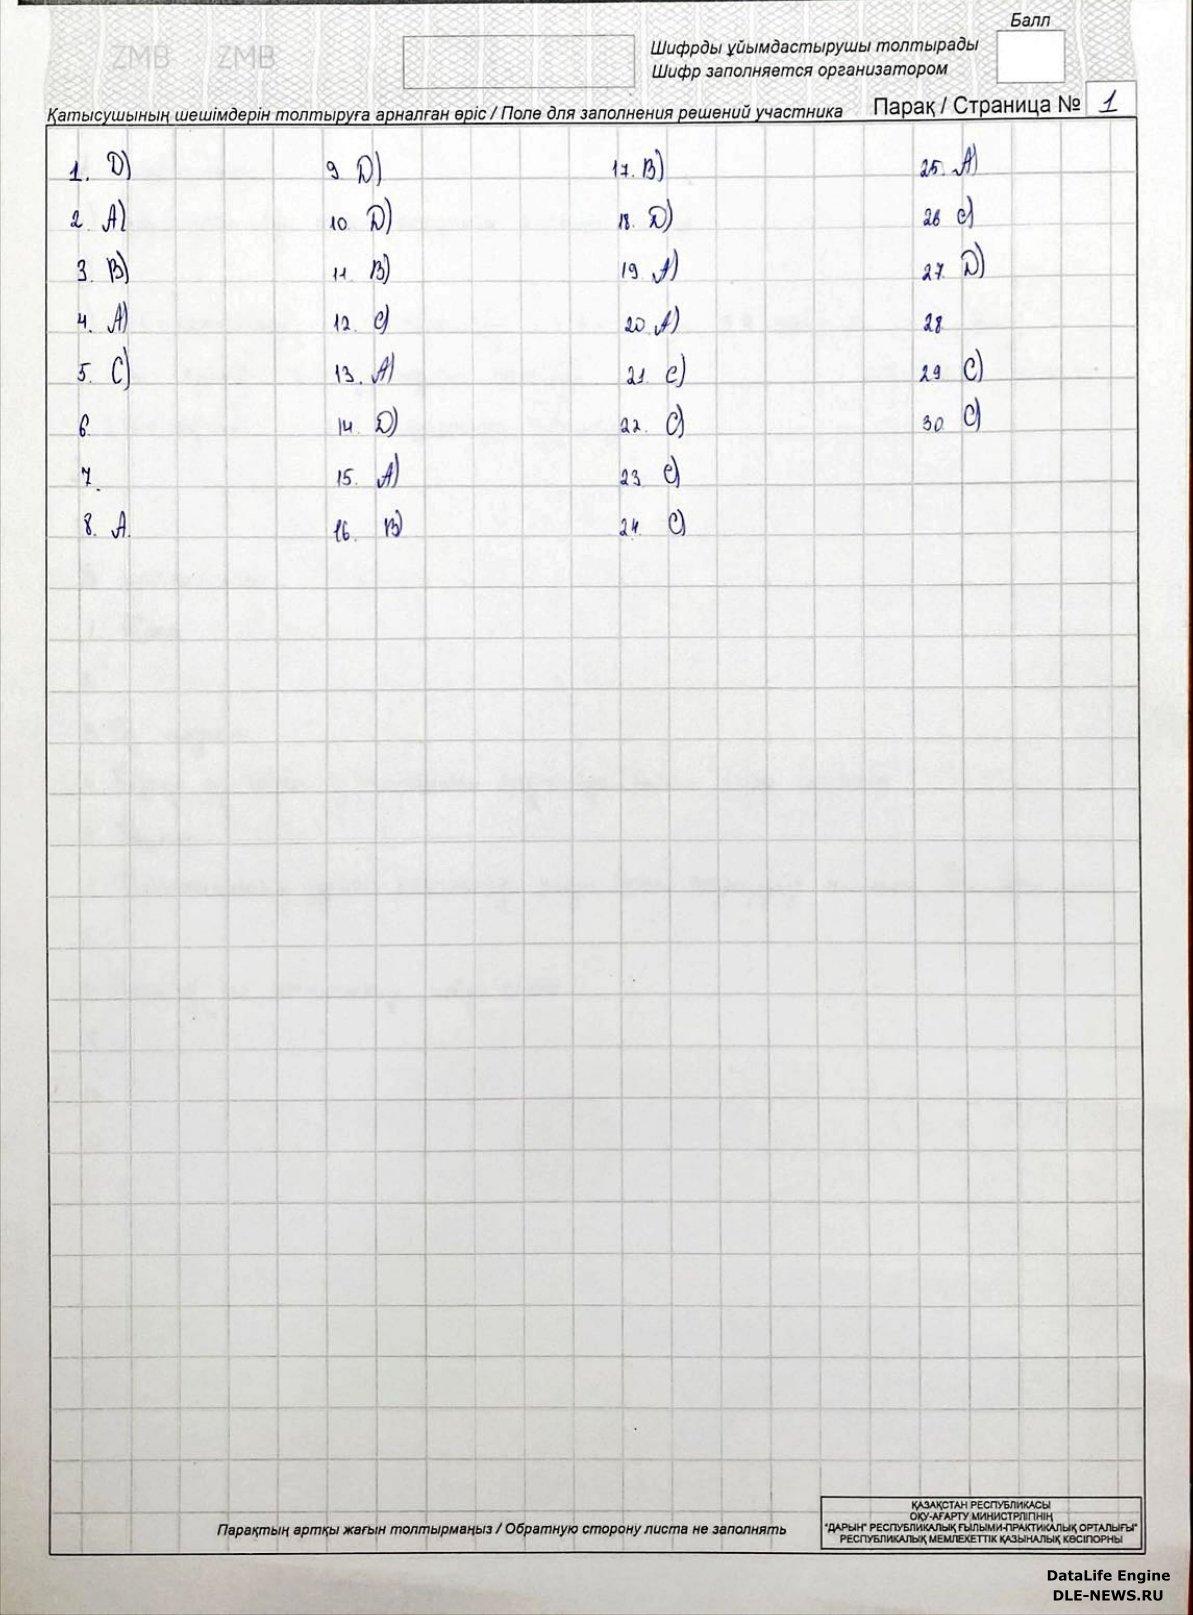 Балл
ZMB ZMB
Шифрды ұйымдастырушы толтырады
Шифр заполняется организатором
Қатысушының шешімдерін толтыруға арналған өріс / Поле для заполнения решений участника
Парақ / Страница № 1
1. D)
2. A)
3. B)
4. A)
5. C)
6.
7.
8. A.
9 D)
10. D)
11. B)
12. C)
13. A)
14. D)
15. A)
16. B)
17. B)
18. D)
19 A)
20. A)
21. C)
22. C)
23 C)
24. C)
25. A)
26 C)
27. D)
28
29 C)
30. C)
Парақтың артқы жағын толтырмаңыз / Обратную сторону листа не заполнять
ҚАЗАҚСТАН РЕСПУБЛИКАСЫ
ОҚУ-АҒАРТУ МИНИСТРЛІГІНІҢ
"ДАРЫН" РЕСПУБЛИКАЛЫҚ ҒЫЛЫМИ-ПРАКТИКАЛЫҚ ОРТАЛЫҒЫ"
РЕСПУБЛИКАЛЫҚ МЕМЛЕКЕТТІК ҚАЗЫНАЛЫҚ КӘСІПОРНЫ
DataLife Engine
DLE-NEWS.RU